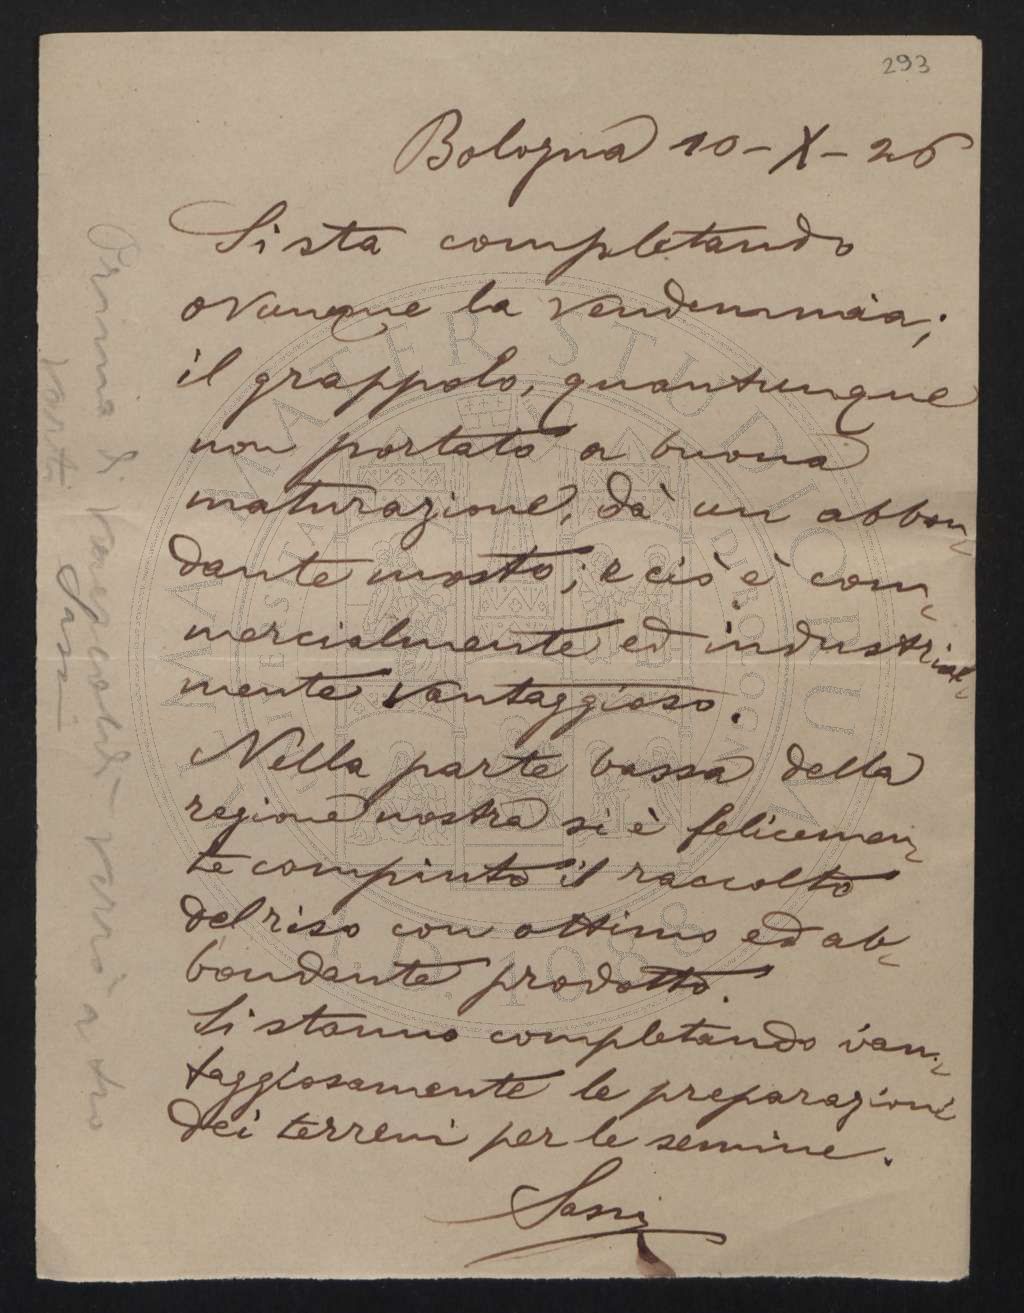 293
Bologna 10-X-26
Si sta completando
ovunque la vendemmia;
il grappolo, quantunque
non portato a buona
maturazione, dà un abbon-
dante mosto; e ciò è com-
mercialmente ed industrial-
mente vantaggioso.
Nella parte bassa della
regione nostra si è felicemen-
te compiuto il raccolto
del riso con ottimo ed ab-
bondante prodotto.
Si stanno completando van-
taggiosamente le preparazioni
dei terreni per le semine.
Sassi
Prima di verrò a
Sassi
ALMA MATER STUDIORUM
A.D. 1088